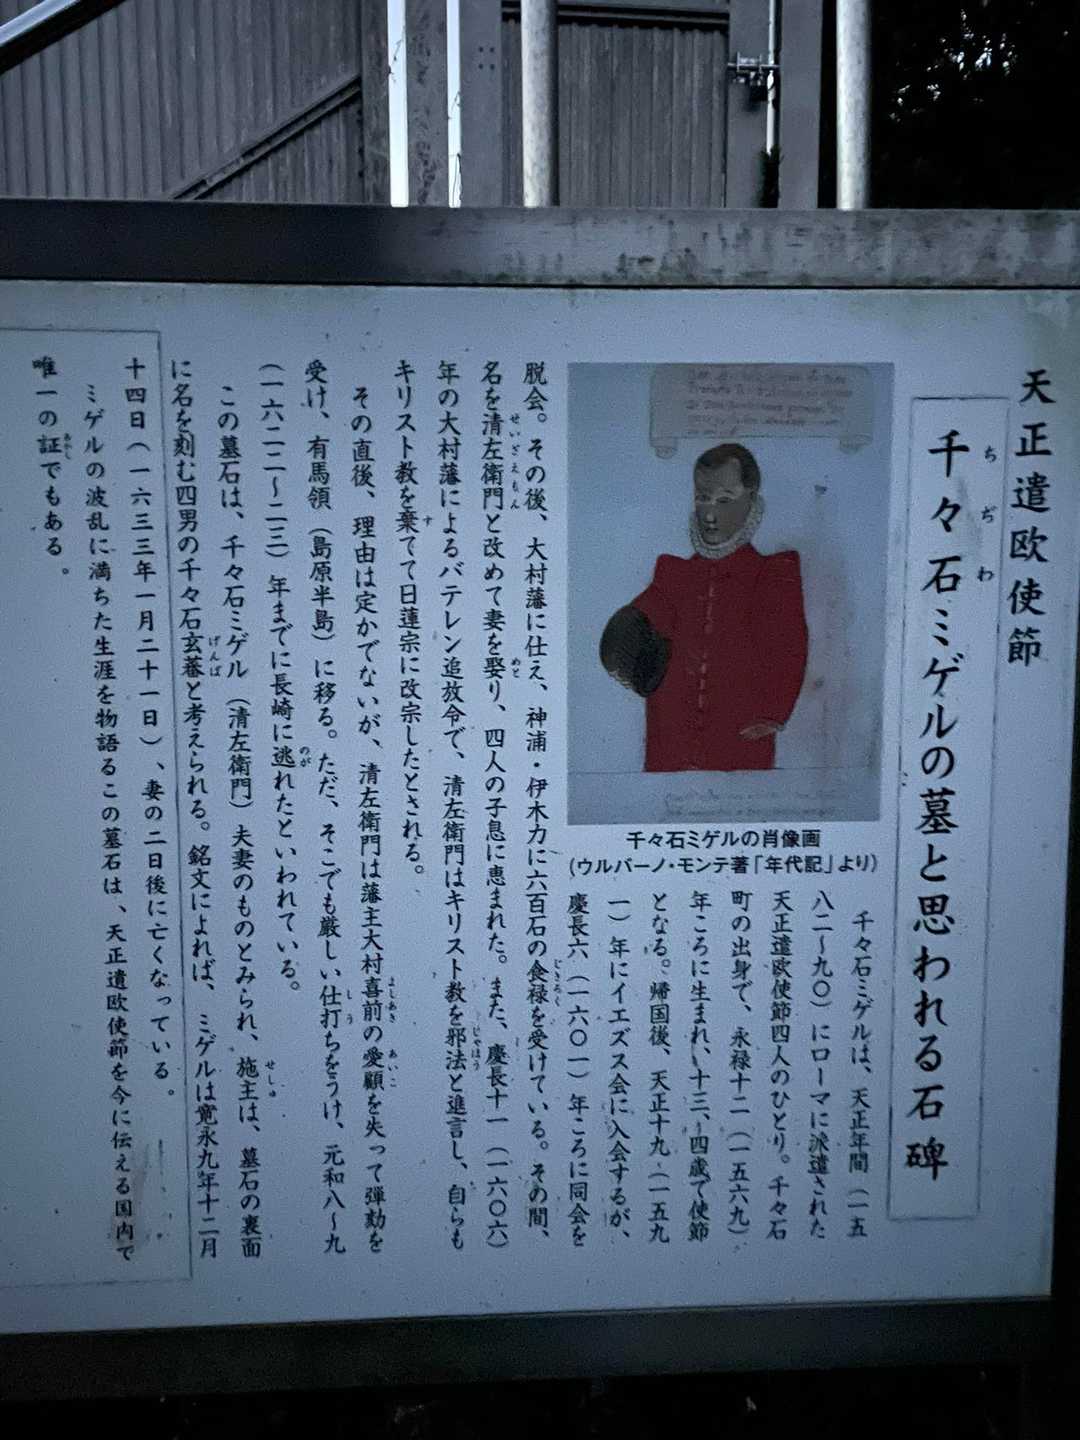 天正遣欧使節
千々石ミゲルの墓と思われる石碑
ちぢわ
千々石ミゲルの肖像画
(ウルバーノ・モンテ著「年代記」より)
千々石ミゲルは、天正年間（一五
八二～九〇）にローマに派遣された
天正遣欧使節四人のひとり。千々石
町の出身で、永禄十二（一五六九）
年ころに生まれ、十三、四歳で使節
となる。帰国後、天正十九（一五九
一）年にイエズス会に入会するが、
慶長六（一六〇一）年ころに同会を
脱会。その後、大村藩に仕え、神浦・伊木力に六百石の食禄を受けている。その間、
じきろく
名を清左衛門と改めて妻を娶り、四人の子息に恵まれた。また、慶長十一（一六〇六）
せいざえもん
めと
年の大村藩によるバテレン追放令で、清左衛門はキリスト教を邪法と進言し、自らも
じゃほう
キリスト教を棄てて日蓮宗に改宗したとされる。
す
その直後、理由は定かでないが、清左衛門は藩主大村喜前の愛顧を失って弾劾を
よしあき
あいこ
受け、有馬領（島原半島）に移る。ただ、そこでも厳しい仕打ちをうけ、元和八～九
しう
（一六二二～二三）年までに長崎に逃れたといわれている。
のが
この墓石は、千々石ミゲル（清左衛門）夫妻のものとみられ、施主は、墓石の裏面
せしゅ
に名を刻む四男の千々石玄蕃と考えられる。銘文によれば、ミゲルは寛永九年十二月
げんば
十四日（一六三三年一月二十一日）、妻の二日後に亡くなっている。
ミゲルの波乱に満ちた生涯を物語るこの墓石は、天正遣欧使節を今に伝える国内で
唯一の証でもある。
あかし